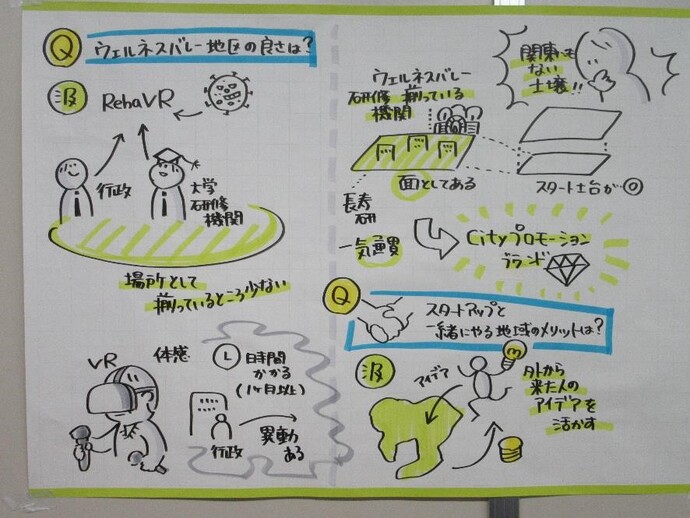 Q ウェルネスバレー地区の良さは?
RehaVR
行政
大学
研修
機関
場所として
揃っているところ少ない
VR
体感
時間
かかる
(1ヶ月以上)
行政
異動
ある
ウェルネスバレー
研修 揃っている
機関
面としてある
長寿
研
一気通貫
関東にも
ない
土壌!!
スタート土台が◎
Cityプロモーション
ブランド
Q スタートアップと
一緒にやる地域のメリットは?
アイデア
外から
来た人の
アイデアを
活かす